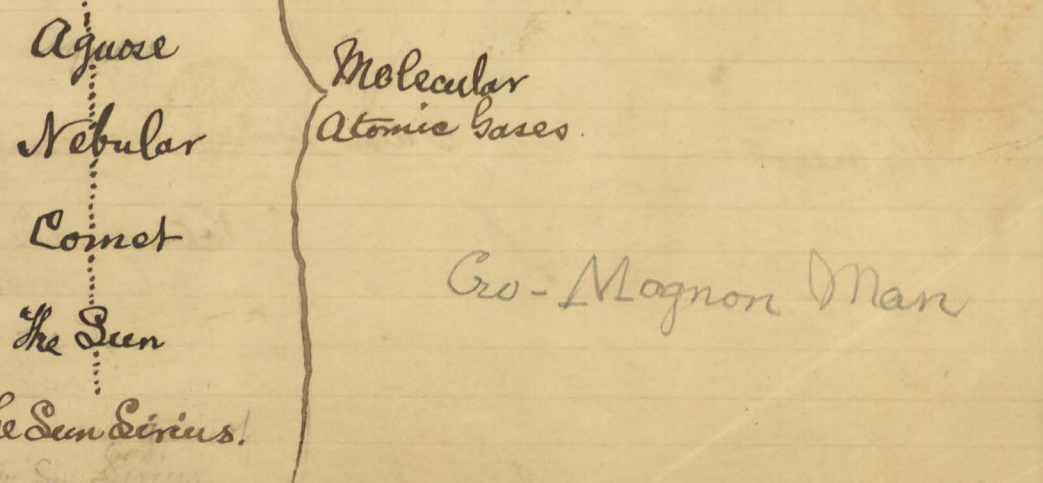 Aguose
Nebular
Comet
The Sun
he Sun Sirius.
Molecular
Atomic Gases.
Cro-Magnon Man